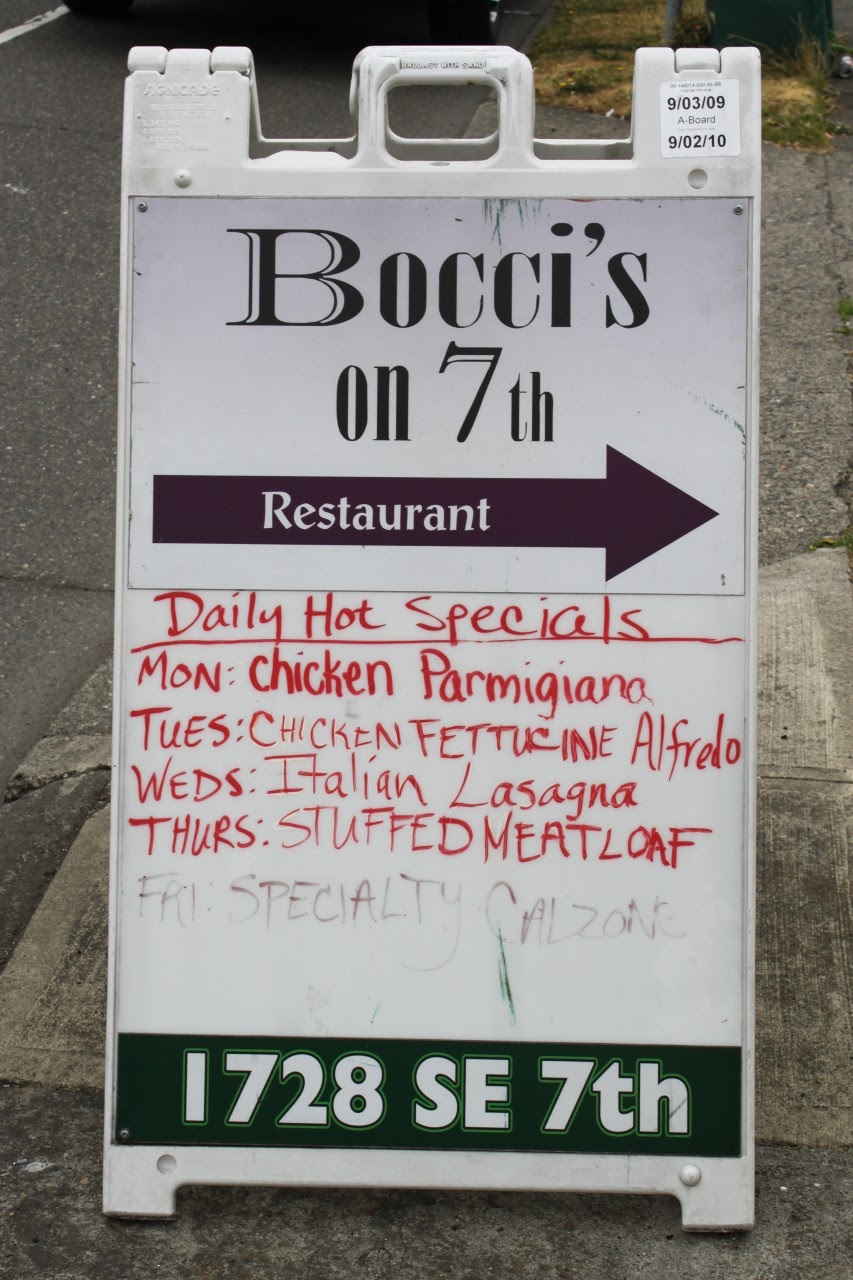 BALLAST WITH SAND
SIGNICADE
9/03/09
A-Board
9/02/10
Bocci's
on 7th
Restaurant
Daily Hot Specials
MON: Chicken Parmigiana
TUES: CHICKEN FETTUCINE Alfredo
WEDS: Italian Lasagna
THURS: STUFFED MEATLOAF
FRI: SPECIALTY CALZONE
1728 SE 7th